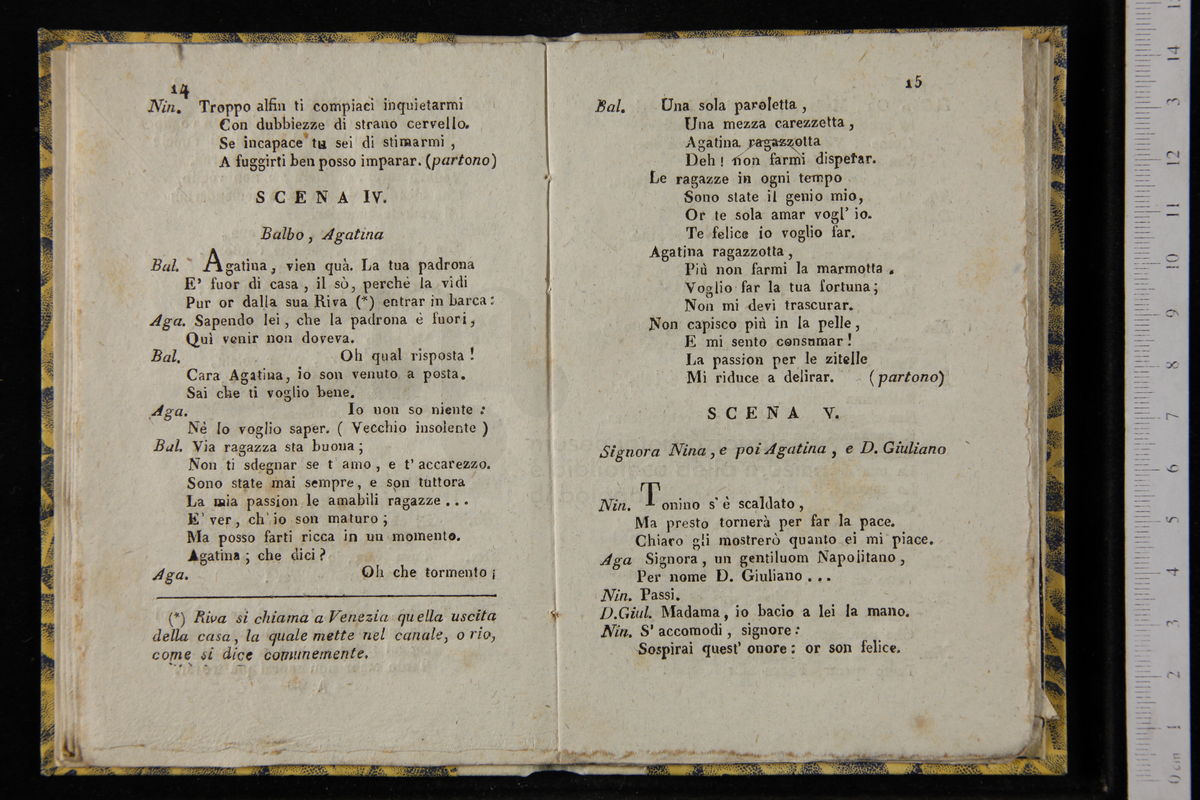 14
Nin. Troppo alfin ti compiaci inquietarmi
Con dubbiezze di strano cervello.
Se incapace tu sei di stimarmi ,
A fuggirti ben posso imparar. (partono)
SCENA IV.
Balbo , Agatina
Bal. Agatina, vien quà. La tua padrona
E' fuor di casa , il sò, perchè la vidi
Pur or dalla sua Riva (*) entrar in barca:
Aga. Sapendo lei , che la padrona è fuori,
Quì venir non doveva.
Bal. Oh qual risposta !
Cara Agatina, io son venuto a posta.
Sai che ti voglio bene.
Aga. Io non so niente :
Nè lo voglio saper. ( Vecchio insolente )
Bal. Via ragazza sta buona ;
Non ti sdegnar se t amo , e t' accarezzo.
Sono state mai sempre, e son tuttora
La mia passion le amabili ragazze ...
E' ver, ch' io son maturo ;
Ma posso farti ricca in un momento.
Agatina ; che dici ?
Aga. Oh che tormento ¡
(*) Riva si chiama a Venezia quella uscita
della casa, la quale mette nel canale, o rio,
come si dice comunemente.
15
Bal. Una sola paroletta ,
Una mezza carezzetta ,
Agatina ragazzotta
Deh ! non farmi disperar.
Le ragazze in ogni tempo
Sono state il genio mio,
Or te sola amar vogl' io.
Te felice io voglio far.
Agatina ragazzotta ,
Più non farmi la marmotta .
Voglio far la tua fortuna;
Non mi devi trascurar.
Non capisco più in la pelle ,
E mi sento consumar !
La passion per le zitelle
Mi riduce a delirar. (partono)
SCENA V.
Signora Nina , e poi Agatina , e D. Giuliano
Nin. Tonino s' è scaldato ,
Ma presto tornerà per far la pace.
Chiaro gli mostrerò quanto ei mi piace.
Aga Signora , un gentiluom Napolitano ,
Per nome D. Giuliano ...
Nin. Passi.
D.Giul. Madama, io bacio a lei la mano.
Nin. S' accomodi , signore :
Sospirai quest' onore : or son felice.
0 cm
1
2
3
4
5
6
7
8
9
10
11
12
13
14